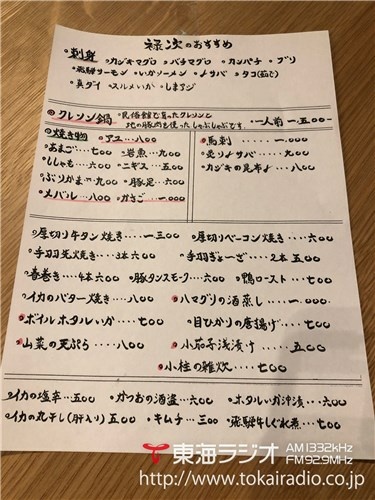 禄次のおすすめ
◎刺身 ・カジキマグロ ・バチマグロ ・カンパチ ・ブリ
・飛騨サーモン ・いかソーメン ・〆サバ ・タコ(茹で)
・真ダイ ・スルメいか ・しまアジ
◎クレソン鍋 ・民俗館で育ったクレソンと
地の豚肉を使ったしゃぶしゃぶです。 ・一人前…一,五〇〇-
◎焼き物 ・アユ…八〇〇
・あまご…七〇〇 ・岩魚…九〇〇
・ししゃも…六〇〇 ・ニギス…五〇〇
・ぶりかま…九〇〇 ・豚足…六〇〇
・メバル…八〇〇 ・かさご…一,〇〇〇
◎馬刺……一,〇〇〇
・炙り〆サバ…九〇〇
・カジキの昆布〆…八〇〇
・厚切り牛タン焼き…一三〇〇 ・厚切りベーコン焼き…六〇〇
・手羽先焼き…3本六〇〇 ・手羽ぎょーざ…2本五〇〇
・春巻き…4本六〇〇 ・豚タンスモーク…六〇〇 ・鴨ロースト…七〇〇
・イカのバター焼き…八〇〇 ◎ハマグリの酒蒸し…一,〇〇〇
◎ボイルホタルいか…七〇〇 ・目ひかりの唐揚げ…七〇〇
◎山菜の天ぷら…八〇〇 ◎小茄子浅漬け…五〇〇
・小柱の雑炊…七〇〇
・イカの塩辛…五〇〇 ・かつおの酒盗…六〇〇 ・ホタルいか沖漬…六〇〇
・イカの丸干し(肝入り)五〇〇 ・キムチ…三〇〇 ・飛騨牛しぐれ煮…七〇〇
東海ラジオ AM1332kHz
FM92.9MHz
http://www.tokairadio.co.jp